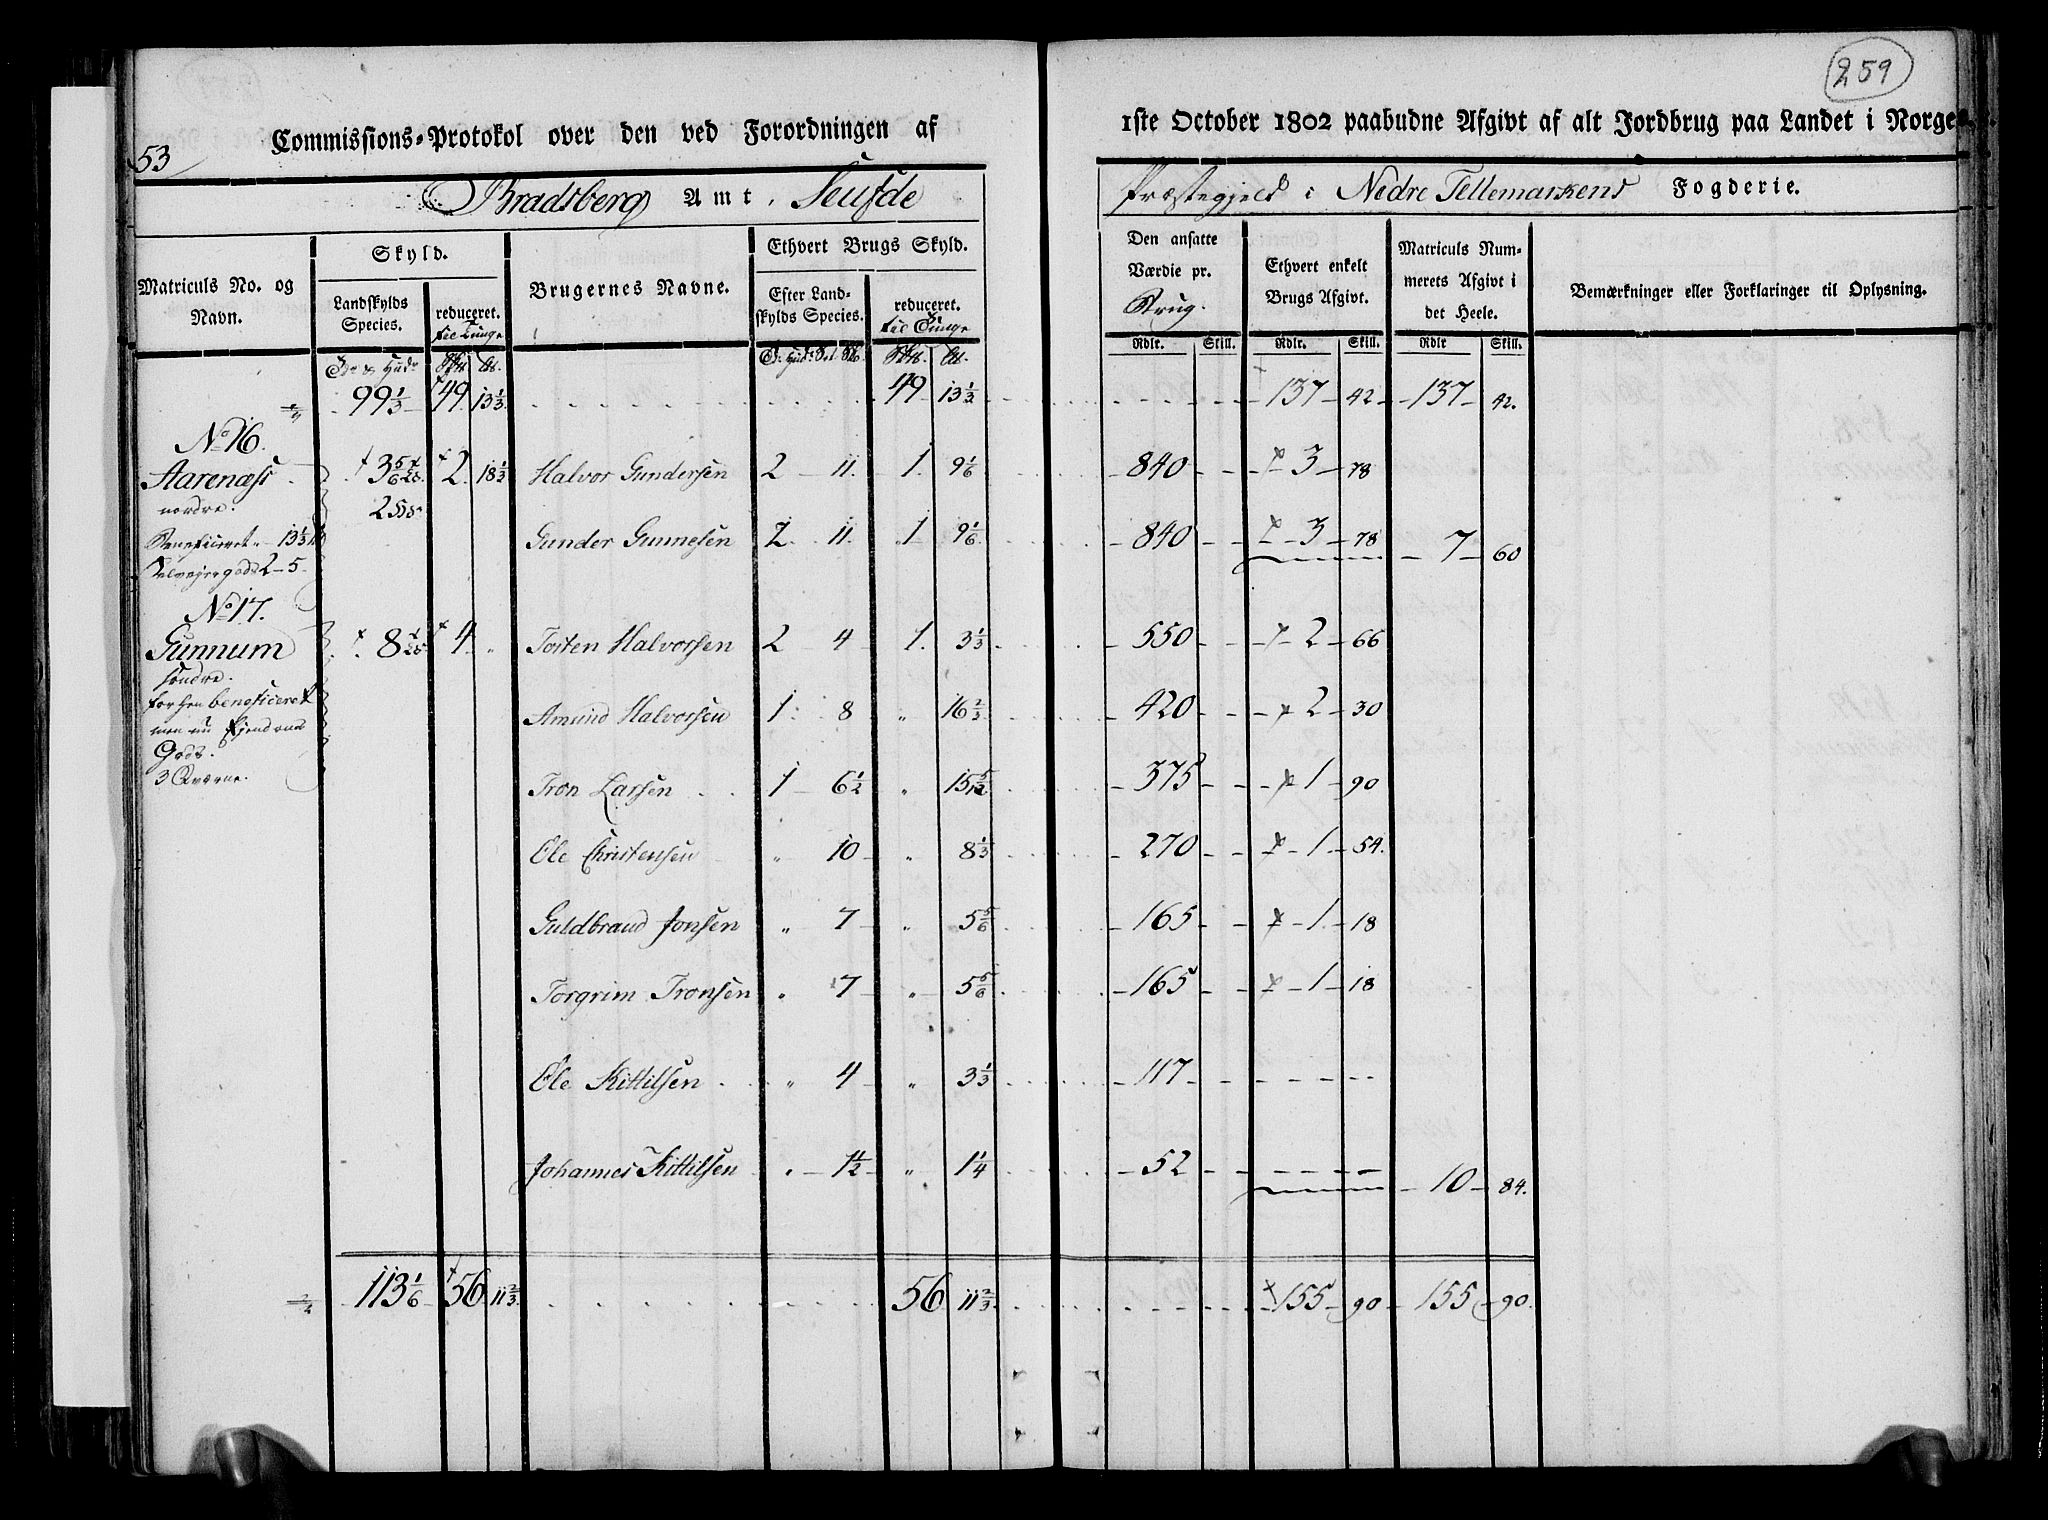 259
Commissions-Protokol over den ved Forordningen af 1ste October 1802 paabudne Afgivt af alt Jordbrug paa Landet i Norge.
53
Bradsberg Amt, Seufde Præstegjeld i Nedre Tellemarkens Fogderie.
Matriculs No. og Navn.
Skyld.
Landskylds Species.
reduceret. til Tunge
Brugernes Navne.
Ethvert Brugs Skyld.
Efter Landskylds Species.
reduceret. til Tunge
Den ansatte Værdie pr. Brug.
Ethvert enkelt Brugs Afgivt.
Matriculs Nummerets Afgivt i det Heele.
Bemærkninger eller Forklaringer til Oplysning.
Rdlr. Skill. Rdlr. Skill. Rdlr Skill.
99 1/3 49 13 1/3 49 13 1/3 137 42 137 42.
No 16.
Aarenæss 3 5/6 2 18 1/3 Halvor Gundersen 2 11. 1. 9 1/6 840 3 78
nordre.
Beneficeret 13 1/3 Gunder Gunnesen 2 11. 1 9 1/6 840 3 78 7 60
Selvejergods 2 5
No 17.
Gunnum 8 4 Tosten Halvorsen 2 4 1. 3 1/3 550 2 66
søndre.
forhen beneficeret Amund Halvorsen 1 8 " 16 2/3 420 2 30
men nu Ejendoms
Gods.
3 Qværne. Tron Larsen 1 6 1/2 " 15 5/12 375 1 90
Ole Christensen " 10 " 8 1/3 270 1 54.
Guldbrand Jonsen " 7 " 5 5/6 165 1 18
Torgrim Tronsen " 7 " 5 5/6 165 1 18
Ole Kittilsen " 4 " 3 1/3 117
Johannes Kittilsen " 1 1/2 " 1 1/4 52 10 84.
113 1/6 56 11 2/3 56 11 2/3 155 90 155 90.